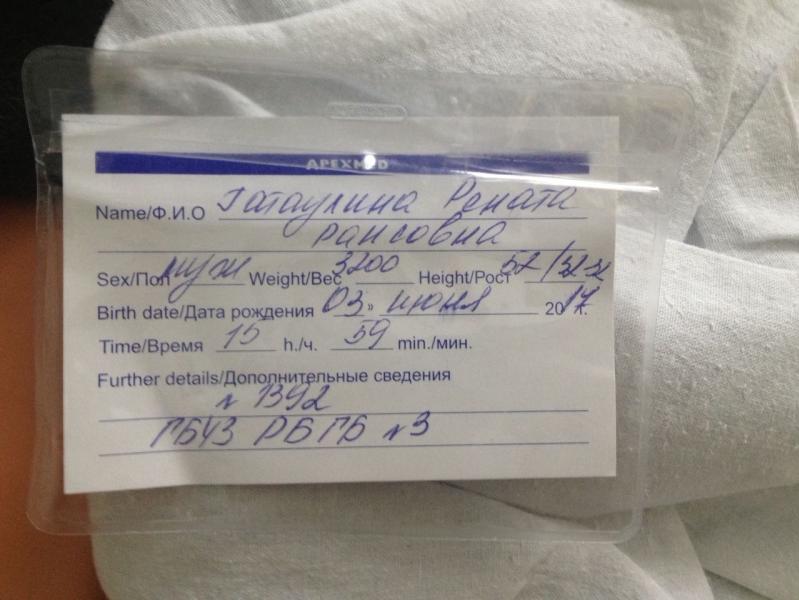 APEXMED
Name/Ф.И.О Гатаулина Рената
Раисовна
Sex/Пол муж Weight/Вес 3200 Height/Рост 52/32-32
Birth date/Дата рождения 03 » июня 2017г.
Time/Время 15 h./ч. 59 min./мин.
Further details/Дополнительные сведения
N 1392
ГБУЗ РБ ГБ N3